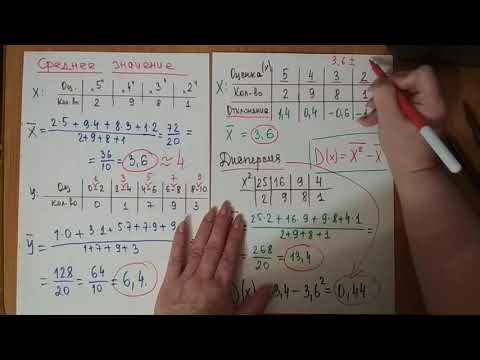 Среднее значение
X: Оц. „5" „4" „3" „2"
Кол-во 2 9 8 1
X̅ = 2·5 + 9·4 + 8·3 + 1·2 / 2+9+8+1 = 72/20 =
= 36/10 = 3,6 ≈ 4
1 3 5 7 9
y: Оц 0-2 2-4 4-6 6-8 8-10
Кол-во 0 1 7 9 3
y̅ = 1·0 + 3·1 + 5·7 + 7·9 + 9 / 1+7+9+3
= 128/20 = 64/10 = 6,4.
3,6 ±
X: Оценка (x) 5 4 3 2
Кол-во 2 9 8 1
Отклонение 1,4 0,4 -0,6
X̅ = 3,6
Дисперсия D(x) = x̅² - x̅
X² 25 16 9 4
2 9 8 1
= 25·2 + 16·9 + 9·8 + 4·1 / 2+9+8+1 =
= 268/20 = 13,4
D(x) 3,4 - 3,6² = 0,44